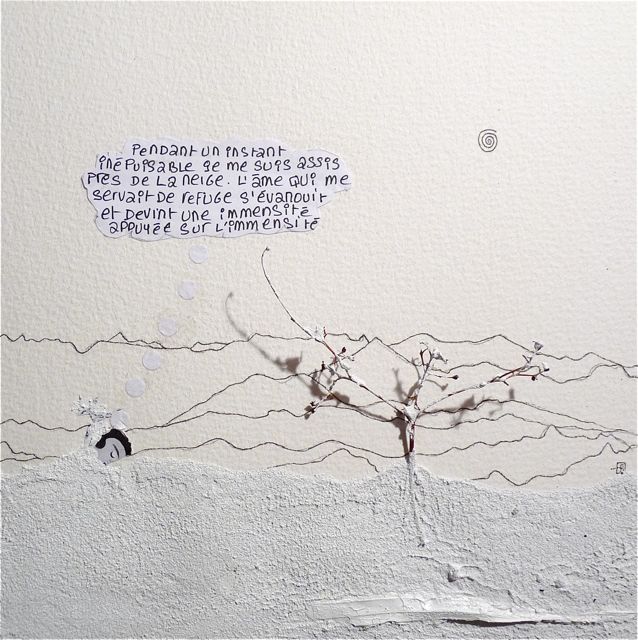 Pendant un instant
inépuisable je me suis assis
près de la neige. L'âme qui me
servait de refuge s'évanouit
et devint une immensité
appuyée sur l'immensité